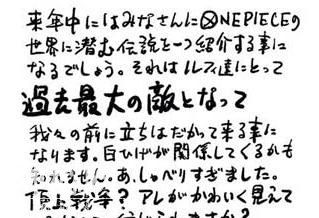 来年中にはみなさんにONEPIECEの
世界に潜む伝説を一つ紹介する事に
なるでしょう。それはルフィ達にとって
過去最大の敵となって
我々の前に立ちはだかって来る事に
なります。白ひげが関係してくるかも
知れません。あ、しゃべりすぎました。
頂上戦争？アレがかわいく見えて